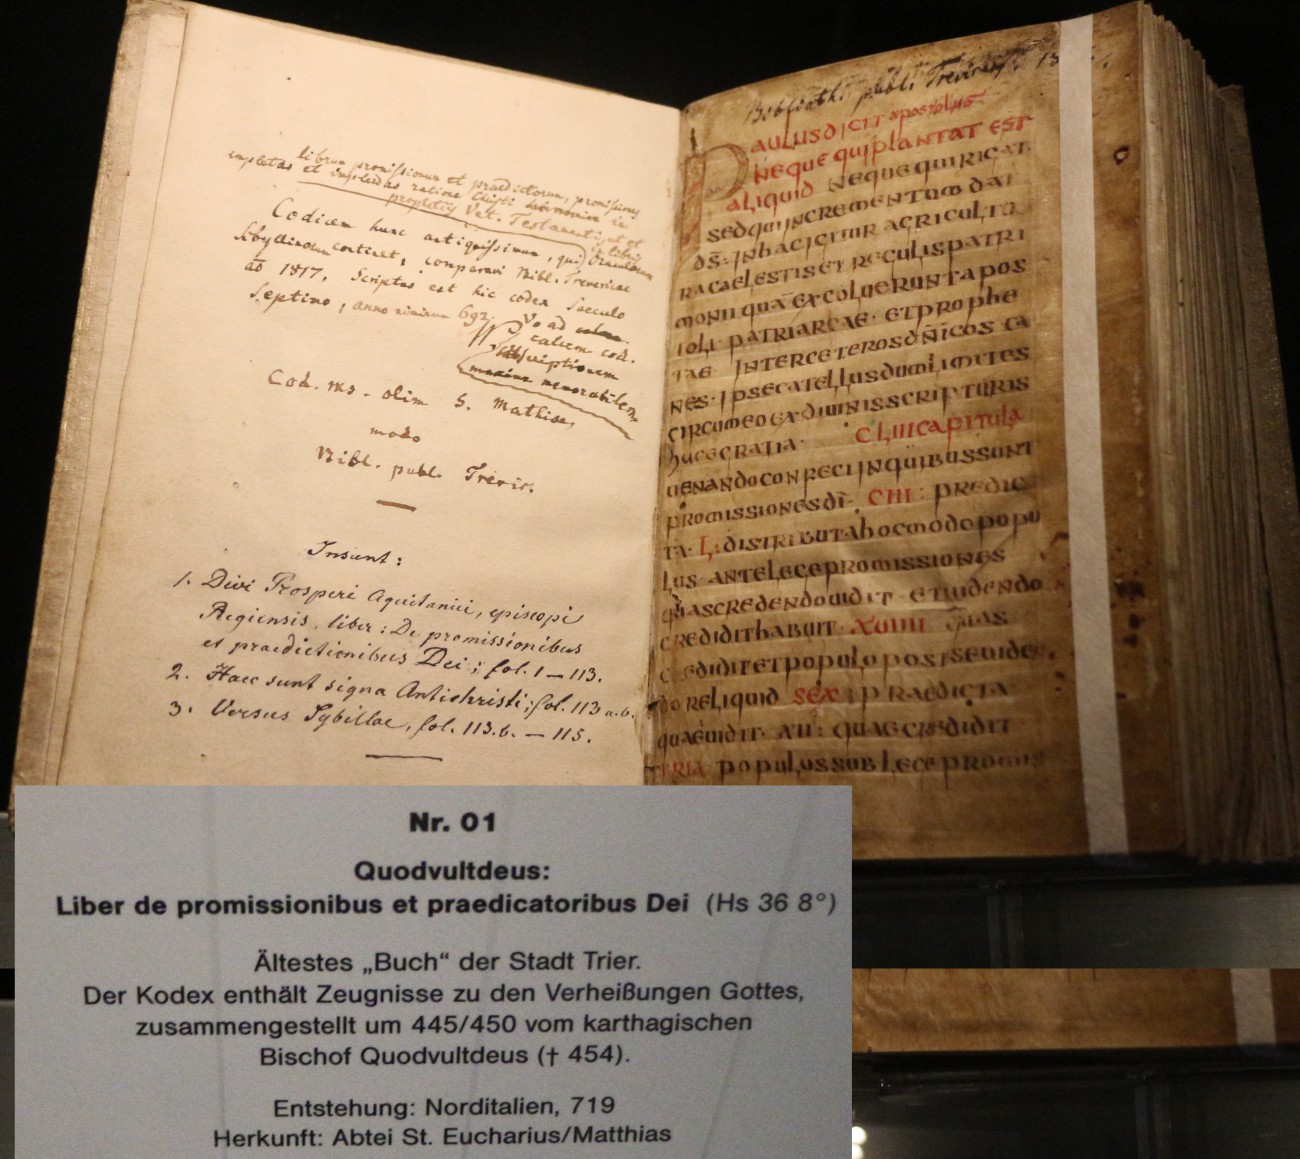 librum promissionum et praedictorum, promissiones
impletas et implendas ratione Christi
prophetis Vet. Testamenti
Codicem hunc antiquissimum, qui Oraculorum
Sibyllinorum continet, comparavi Bibl. Trevericae
aō 1817, Scriptus est hic codex Saeculo
Septimo, anno nimirum 692.
Vo ad
calcem cod.
subscriptionem
maxime memorabilem
Cod. ms. olim S. Mathiae,
modo
Bibl. publ. Trevir.
Insunt:
1. Divi Prosperi Aquitanici, episcopi
Regiensis, liber: De promissionibus
et praedictionibus Dei; fol. 1 — 113.
2. Haec sunt signa Antichristi; fol. 113 a.b.
3. Versus Sybillae, fol. 113.b. — 115.
publ. Trevirens.
PAULUS DICIT apostolus
NEQUE QUI PLANTAT EST
ALIQUID NEQUE QUI RIGAT
SED QUI INCREMENTUM DAT
DS̄· IN HAC IGITUR AGRICULTU
RA CAELESTIS ET REGULIS PATRI
MONII QUA EXCOLUERUNT APOS
TOLI· PATRIARCAE· ET PROPHE
TAE· INTER CETEROS DN̄ICOS CA
NES· IPSE CATELLUS DUM LIMITES
CIRCUMEO EX DIVINIS SCRIPTURIS
HUC EGRATIA· CLIII CAPITULA
UENANDO CONREGI IN QUIBUS SUNT
PROMISSIONES DĪ· CIII· PREDIC
TA· L· DISTRIBUTA HOC MODO POPU
LUS ANTE LEGE PROMISSIONES
QUAS CREDENDO UIDIT ET UIDENDO
CREDIDIT HABUIT· XUIIII QUAS
CREDIDIT ET POPULO POST SE UIDEN
DO RELIQUID SEX PRAEDICTA
QUAE UIDIT· XII: QUAE CREDIDIT
TERIA POPULUS SUB LEGE PROMIS
Nr. 01
Quodvultdeus:
Liber de promissionibus et praedicatoribus Dei (Hs 36 8°)
Ältestes „Buch“ der Stadt Trier.
Der Kodex enthält Zeugnisse zu den Verheißungen Gottes,
zusammengestellt um 445/450 vom karthagischen
Bischof Quodvultdeus († 454).
Entstehung: Norditalien, 719
Herkunft: Abtei St. Eucharius/Matthias